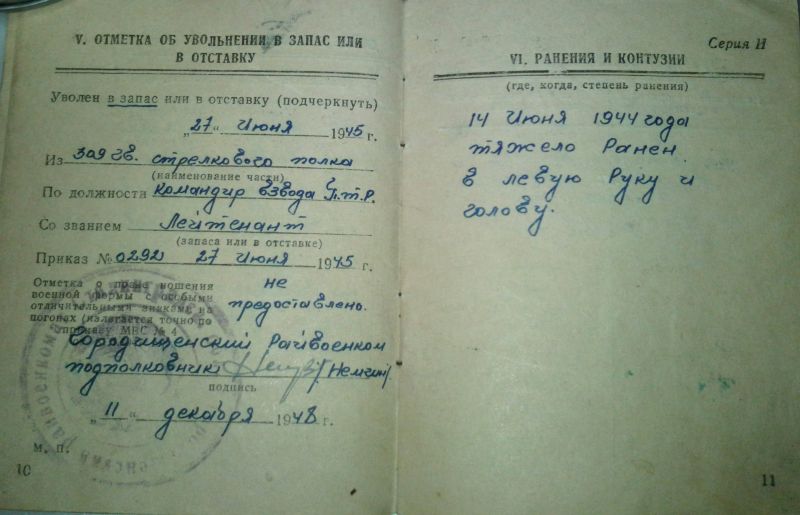 V. ОТМЕТКА ОБ УВОЛЬНЕНИИ В ЗАПАС ИЛИ
В ОТСТАВКУ
Уволен в запас или в отставку (подчеркнуть)
„27“ Июня 1945 г.
Из 309 гв. стрелкового полка
(наименование части)
По должности Командир взвода П.т.Р.
Со званием Лейтенант
(запаса или в отставке)
Приказ № 0292 27 Июня 1945 г.
Отметка о праве ношения
военной формы с особыми
отличительными знаками на
погонах (излагается точно по
приказу МВС № 4
не
предоставлено.
Городищенский Райвоенком
подполковник /Немчин/
подпись
„11“ декабря 1948 г.
М. П.
10
Серия Н
VI. РАНЕНИЯ И КОНТУЗИИ
(где, когда, степень ранения)
14 Июня 1944 года
тяжело Ранен
в левую Руку и
голову.
11